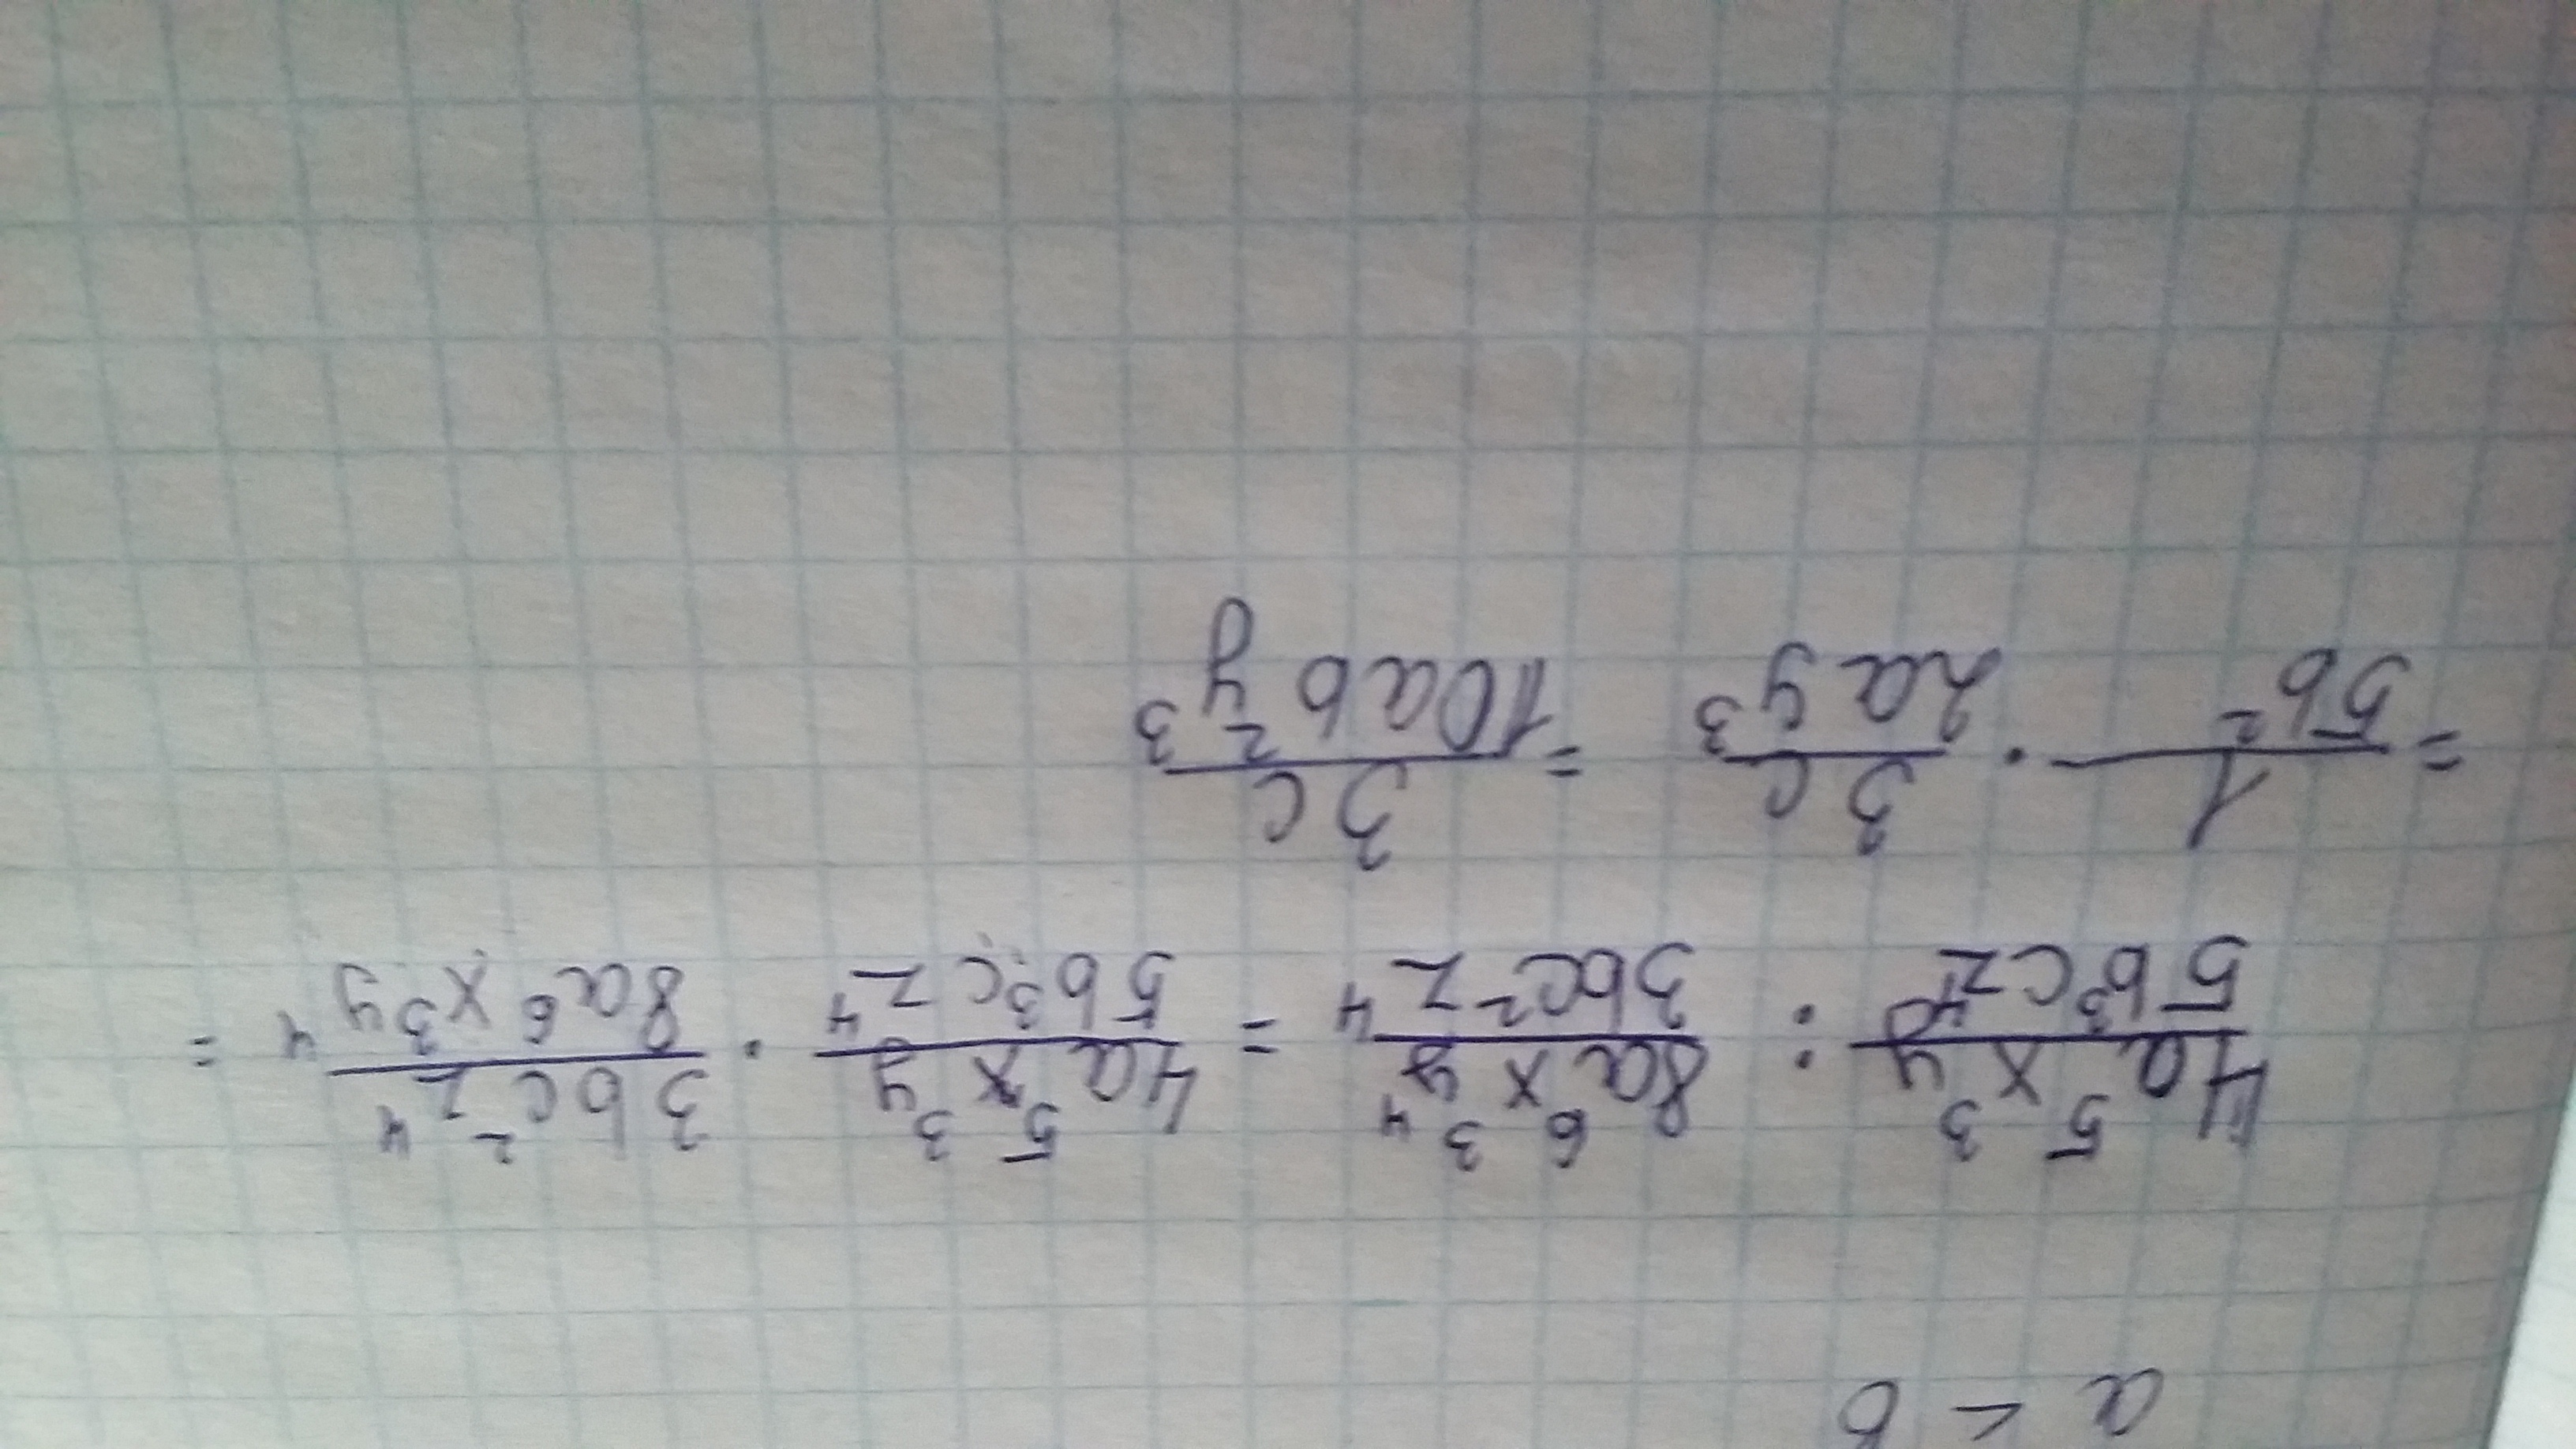 a < b
4a⁵x³y / 5b³cz⁴ : 8a⁶x³y⁴ / 3bc²z⁴ = 4a⁵x³y / 5b³cz⁴ · 3bc²z⁴ / 8a⁶x³y⁴ =
= 1 / 5b² · 3c / 2ay³ = 3c / 10ab²y³